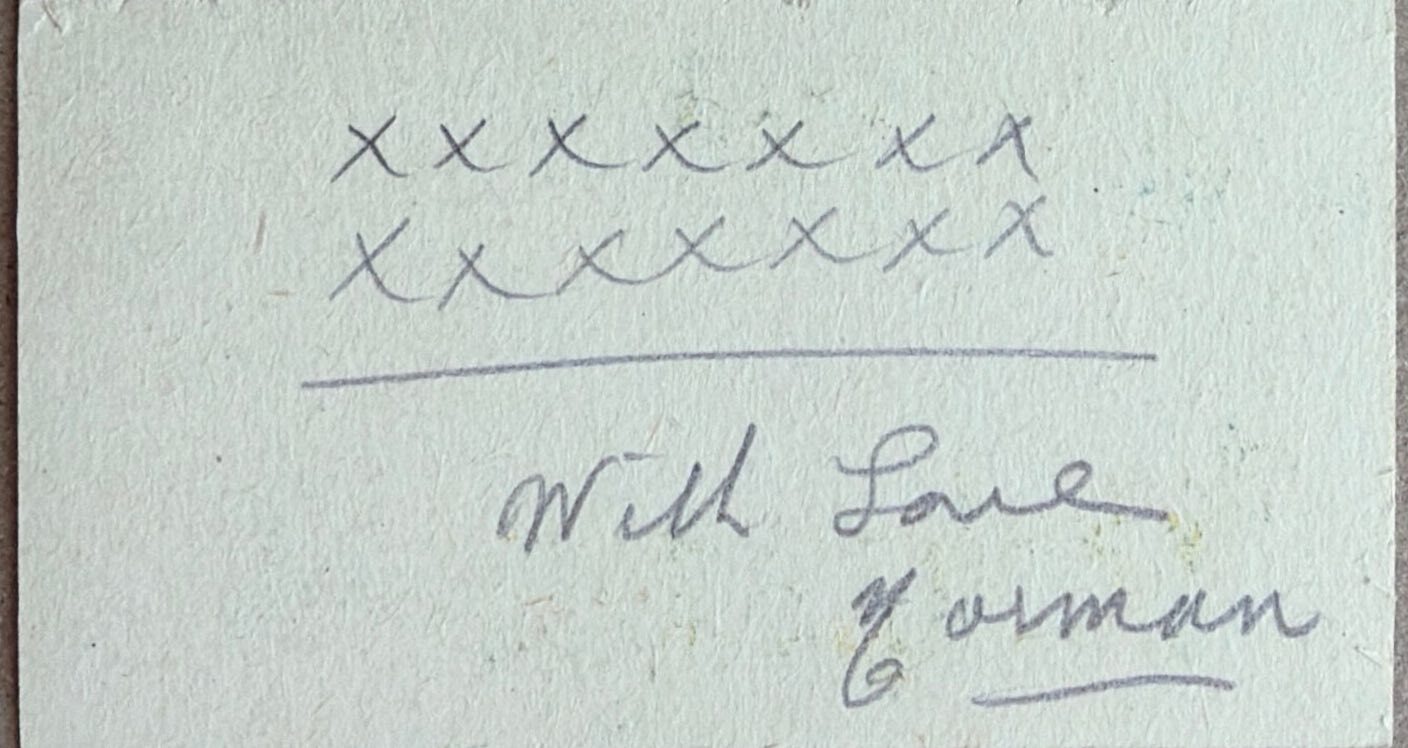 x x x x x x x
x x x x x x x
With Love
Norman